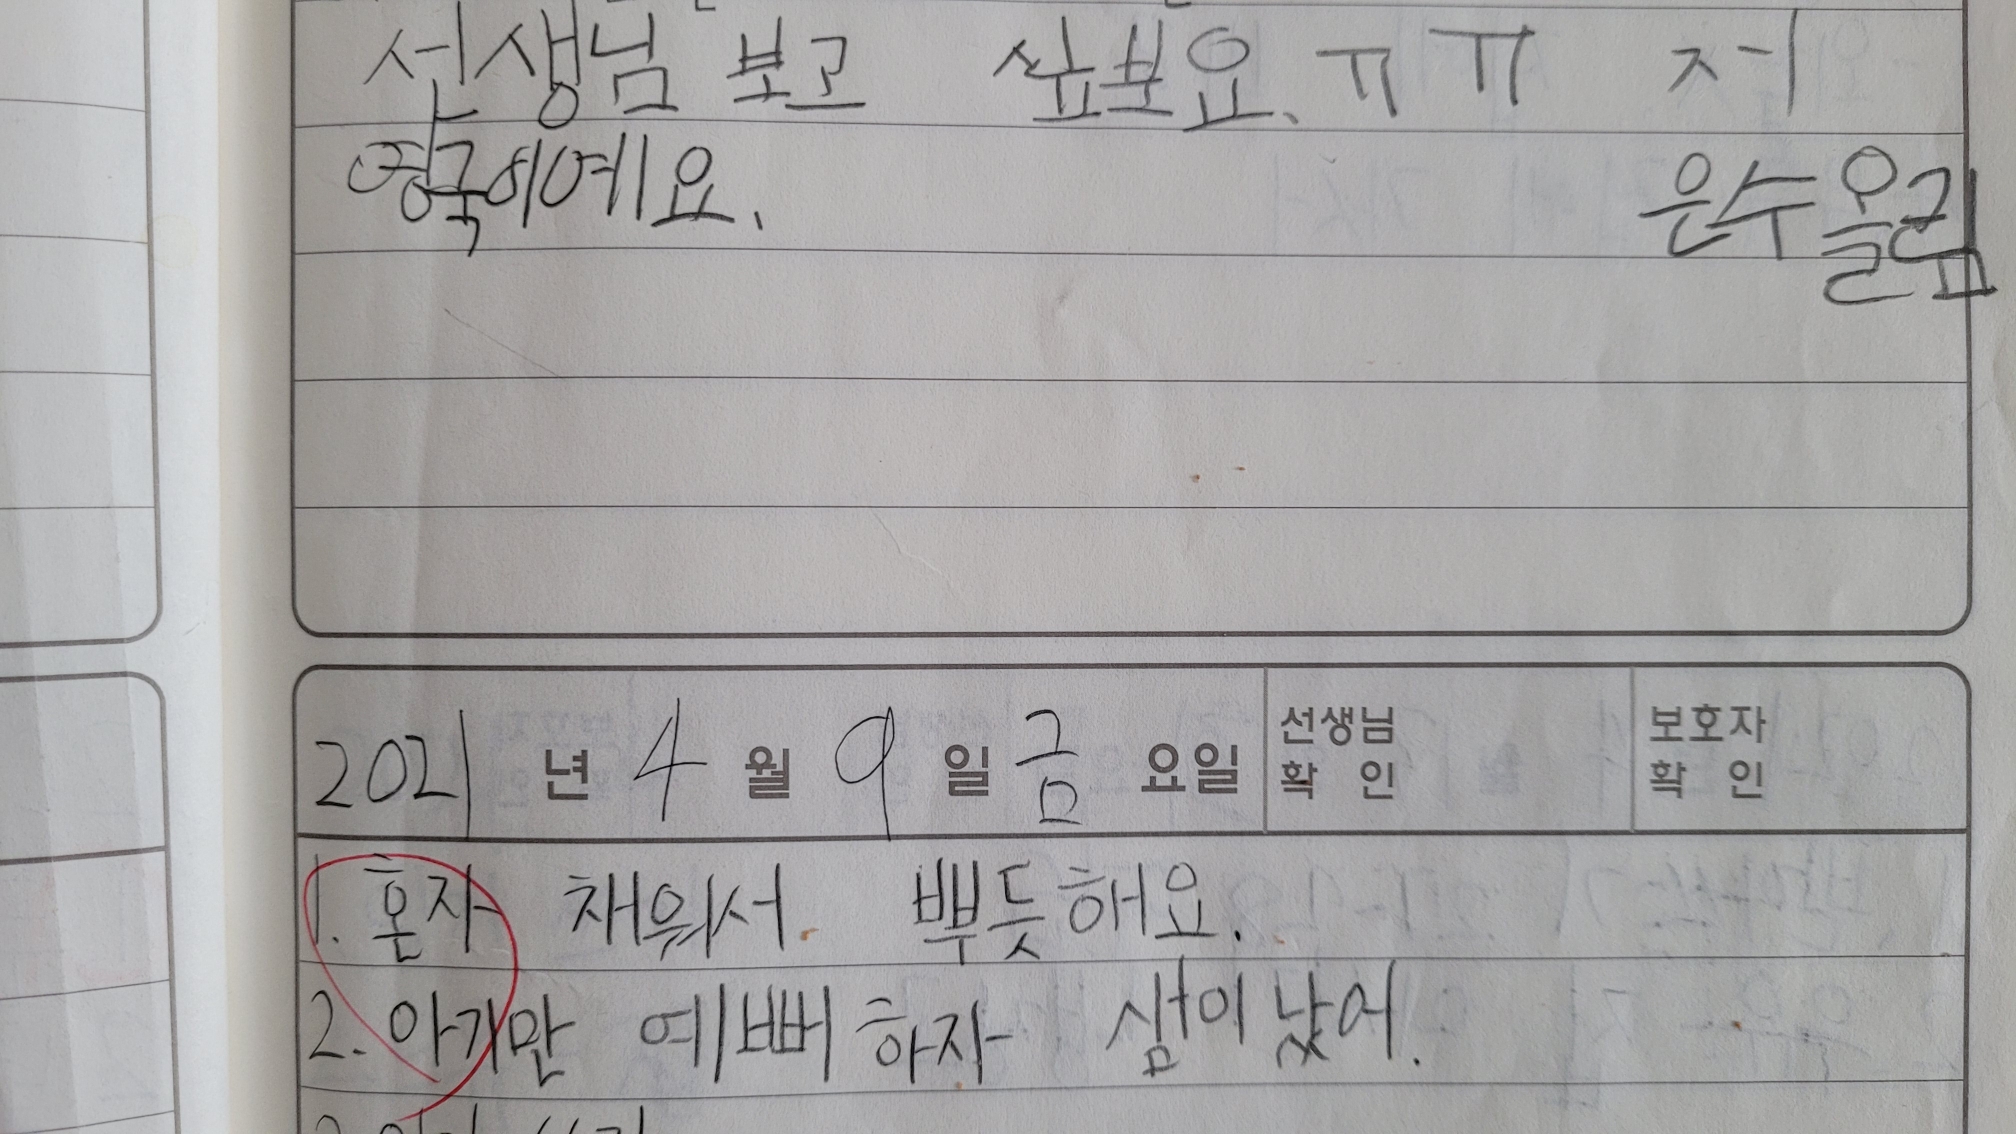 선생님 보고 싶보요. ㅠㅠ 저
영국에예요.
은수올림
2021년 4월 9일 금요일 선생님 확인 보호자 확인
1. 혼자 채워서. 뿌듯해요.
2. 아기만 예뻐하자 샘이 났어.